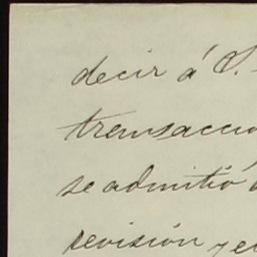 decir á S.
transacció
se admitió
revisión y e